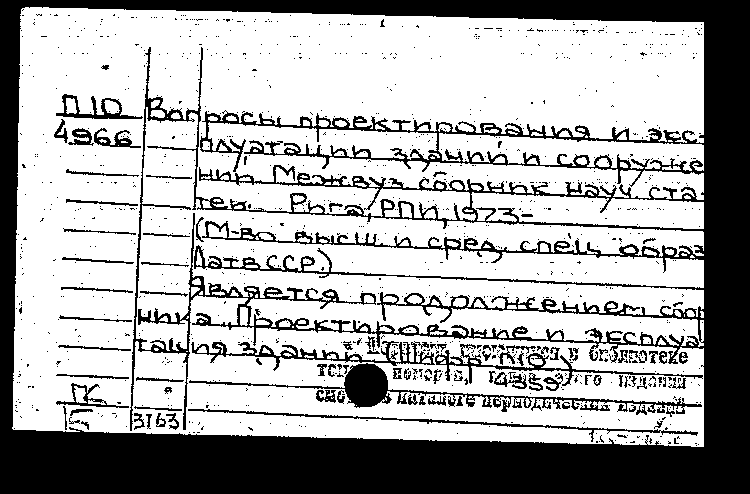 П 10 Вопросы проектирования и экс-
4966 плуатации зданий и сооруже
ний. Межвуз. сборник науч. ста-
тей. Рига, РПИ, 1973-
(М-во высш. и сред. спец. образ
ЛатвССР)
Является продолжением сбор
ника „Проектирование и эксплуа
тация зданий" (Шифр П10
4359)
имеются в библиотеке
номера, этого издания
смотри в каталоге периодических изданий
ГК
Б 3163